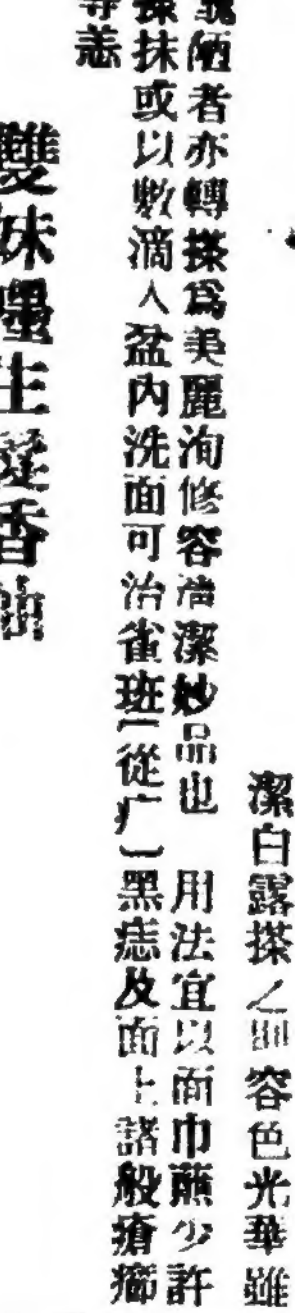 潔白露搽之則容色光華雖
醜陋者亦轉搽爲美麗洵修容清潔妙品也 用法宜以面巾蘸少許
搽抹或以數滴人盆内洗面可治雀班［從疒］黑痣及面上諸般瘡癤
等恙
雙妹嚜生發香